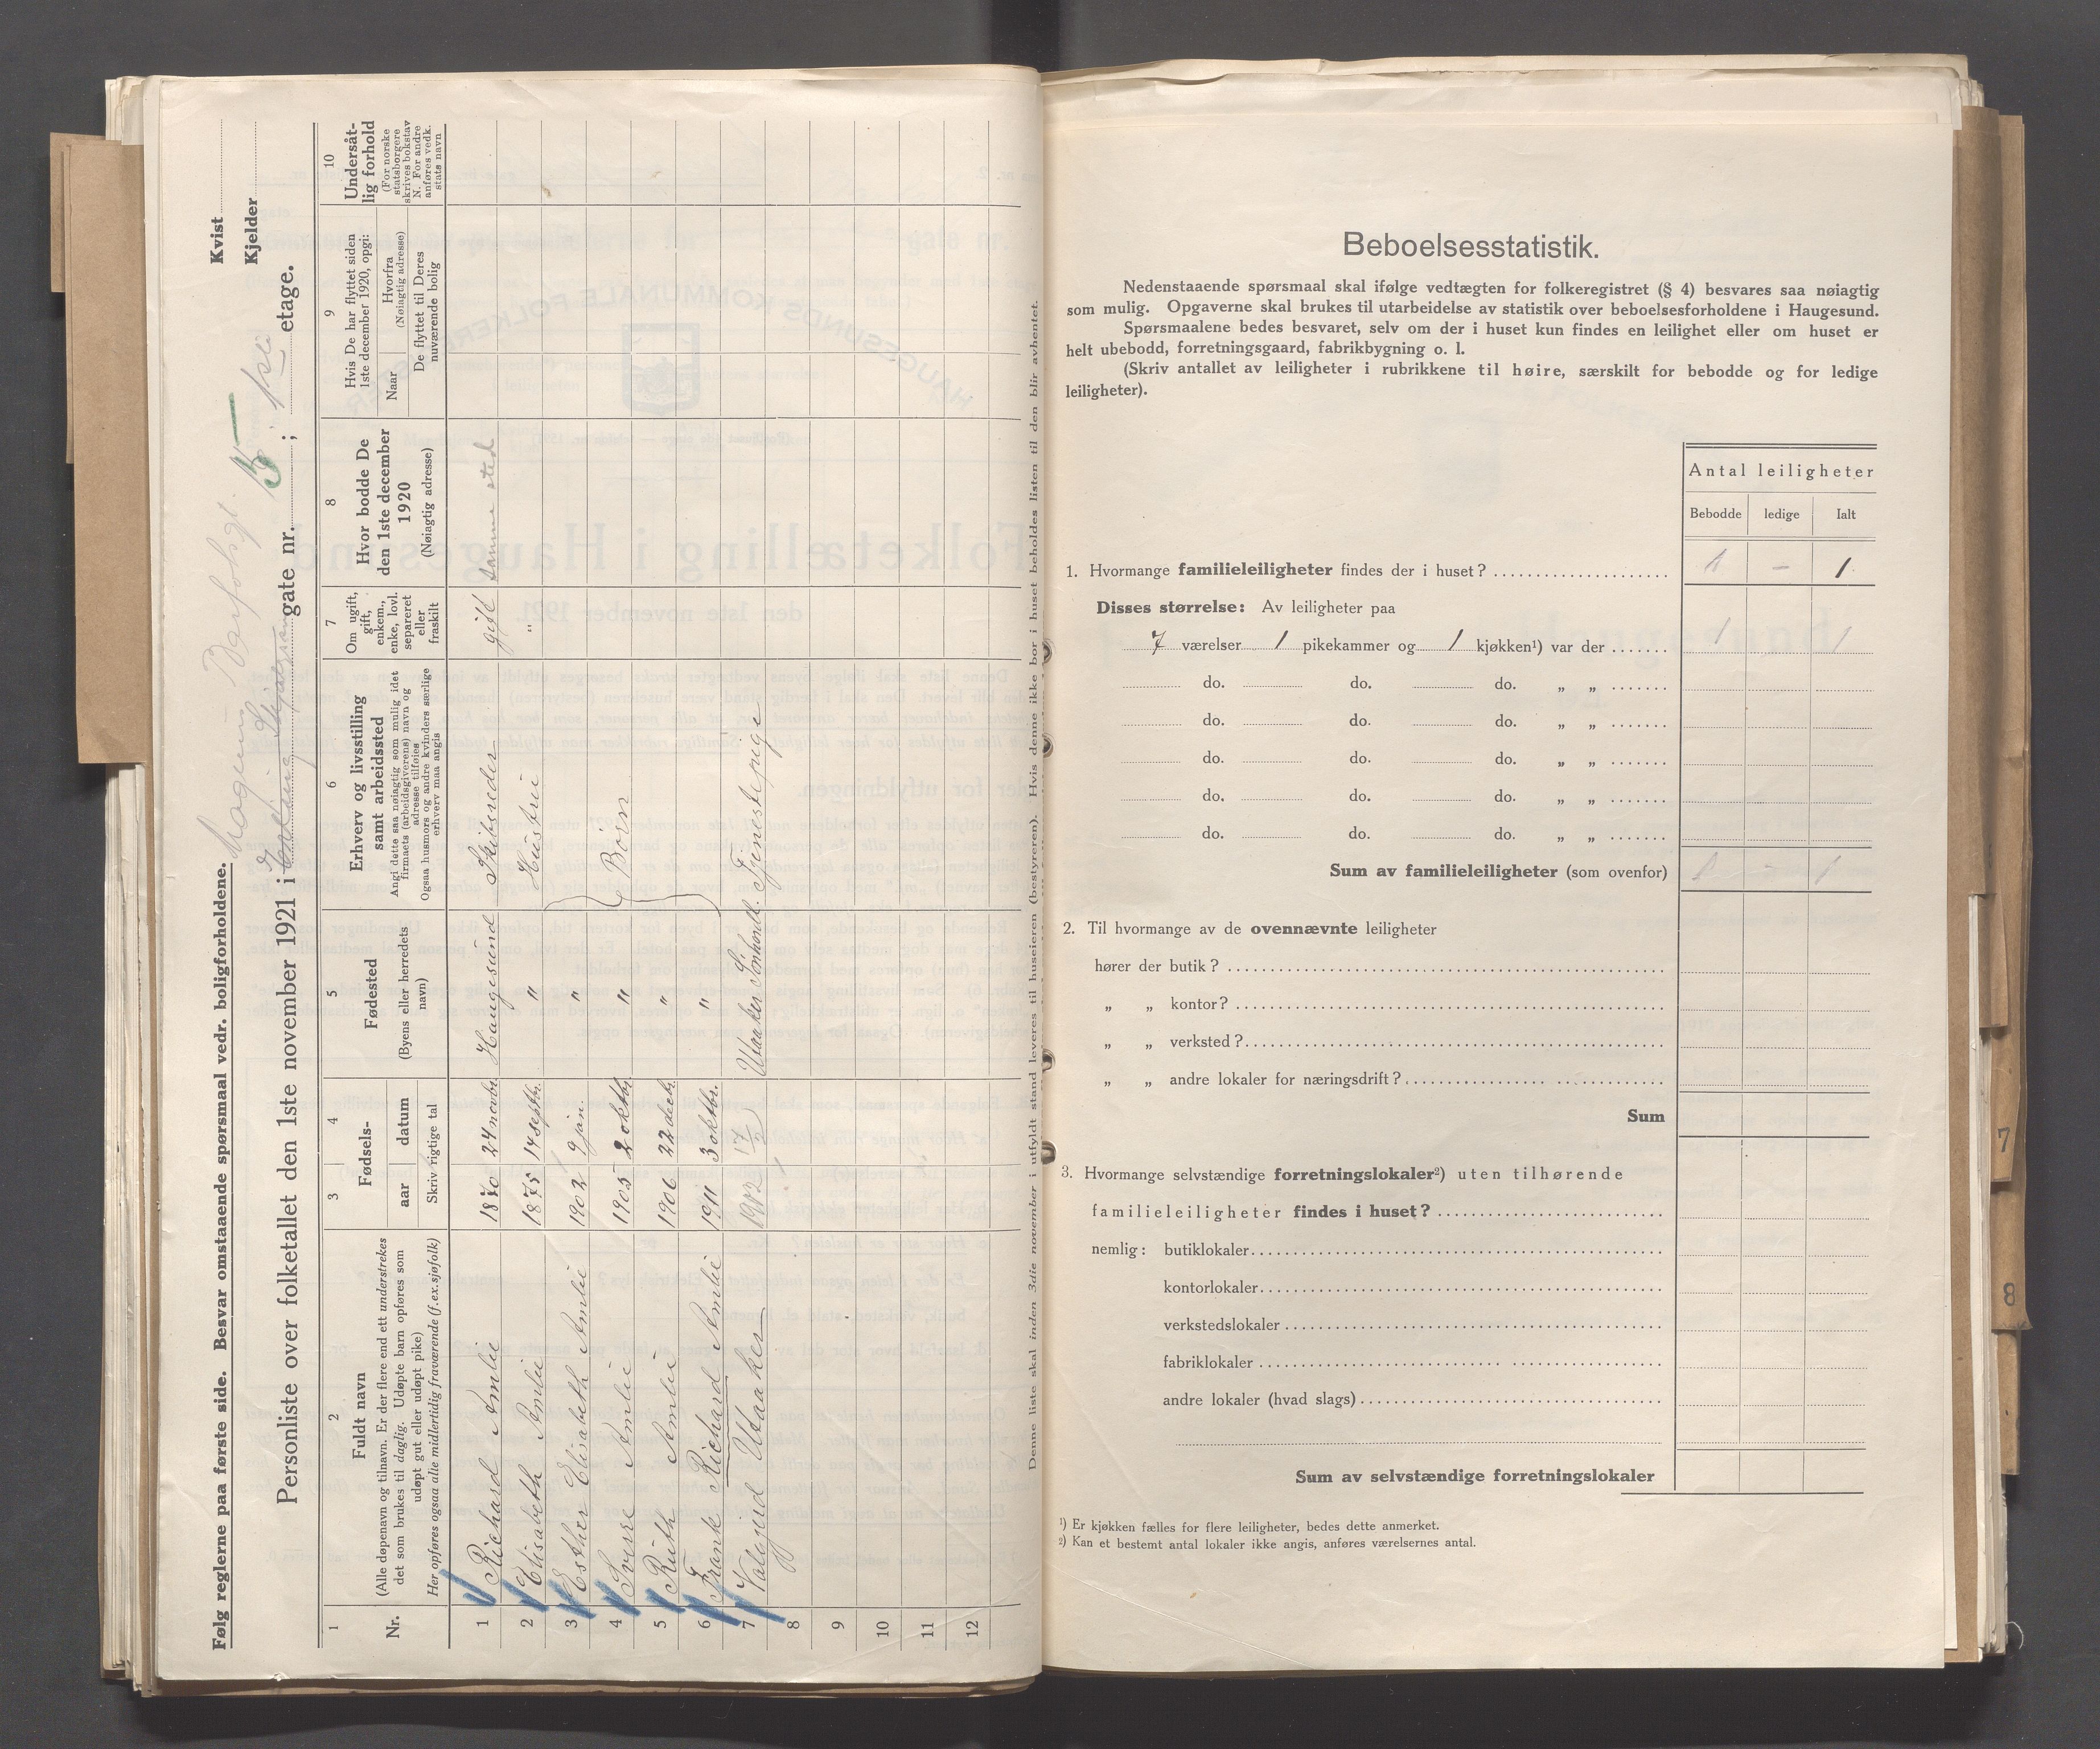 Følg reglerne paa første side. Besvar omstaaende spørsmaal vedr. boligforholdene.
Kvist
Kjelder
Personliste over folketallet den 1ste november 1921 i Erling Skjalgsons gate nr. 15 ; 1ste etage.
1
2
3
4
5
6
7
8
9
10
Nr.
Fuldt navn
(Alle døpenavn og tilnavn. Er der flere end ett understrekes
det som brukes til daglig. Udøpte barn opføres som
udøpt gut eller udøpt pike)
Her opføres ogsaa alle midlertidig fraværende (f.ex.sjøfolk)
Fødsels-
aar
datum
Skriv rigtige tal
Fødested
(Byens eller herredets
navn)
Erhverv og livsstilling
samt arbeidssted
Angi dette saa nøiagtig som mulig idet
firmaets (arbeidsgiverens) navn og
adresse tilføies
Ogsaa husmors og andre kvinders særlige
erhverv maa angis
Om ugift,
gift,
enkem.,
enke, lovl.
separeret
eller
fraskilt
Hvor bodde De
den 1ste december
1920
(Nøiagtig adresse)
Hvis De har flyttet siden
1ste december 1920, opgi:
Naar
Hvorfra
(Nøiagtig adresse)
De flyttet til Deres
nuværende bolig
Undersåt-
lig forhold
(For norske
statsborgere
skrives bokstav
N. For andre
anføres vedk.
stats navn
1 Richard Amlie 1870 24 novbr. Haugesund Skibsreder gift samme sted
2 Elisabeth Amlie 1875 14 septbr. " Hustru "
3 Esther Elisabeth Amlie 1902 9 jan. "
4 Sverre Amlie 1905 2 oktbr. " Børn
5 Ruth Amlie 1906 22 decbr. "
6 Frank Richard Amlie 1911 3 oktbr. "
7 Valgjerd Utaaker 1902 Utaaker Sönhordl. Tjenestepige
8
9
10
11
12
Denne liste skal inden 3die november i utfyldt stand leveres til huseieren (bestyreren). Hvis denne ikke bor i huset beholdes listen til den blir avhentet.
Beboelsesstatistik.
Nedenstaaende spørsmaal skal ifølge vedtægten for folkeregistret (§ 4) besvares saa nøiagtig
som mulig. Opgaverne skal brukes til utarbeidelse av statistik over beboelsesforholdene i Haugesund.
Spørsmaalene bedes besvaret, selv om der i huset kun findes en leilighet eller om huset er
helt ubebodd, forretningsgaard, fabrikbygning o. l.
(Skriv antallet av leiligheter i rubrikkene til høire, særskilt for bebodde og for ledige
leiligheter).
Antal leiligheter
Bebodde ledige Ialt
1. Hvormange familieleiligheter findes der i huset? 1 - 1
Disses størrelse: Av leiligheter paa
7 værelser 1 pikekammer og 1 kjøkken¹) var der 1 1
do. do. do. „ „
do. do. do. „ „
do. do. do. „ „
do. do. do. „ „
do. do. do. „ „
Sum av familieleiligheter (som ovenfor) 1 - 1
2. Til hvormange av de ovennævnte leiligheter
hører der butik?
„ „ kontor?
„ „ verksted?
„ „ andre lokaler for næringsdrift?
Sum
3. Hvormange selvstændige forretningslokaler²) uten tilhørende
familieleiligheter findes i huset?
nemlig: butiklokaler
kontorlokaler
verkstedslokaler
fabriklokaler
andre lokaler (hvad slags)
Sum av selvstændige forretningslokaler
¹) Er kjøkken fælles for flere leiligheter, bedes dette anmerket.
²) Kan et bestemt antal lokaler ikke angis, anføres værelsernes antal.
7
8